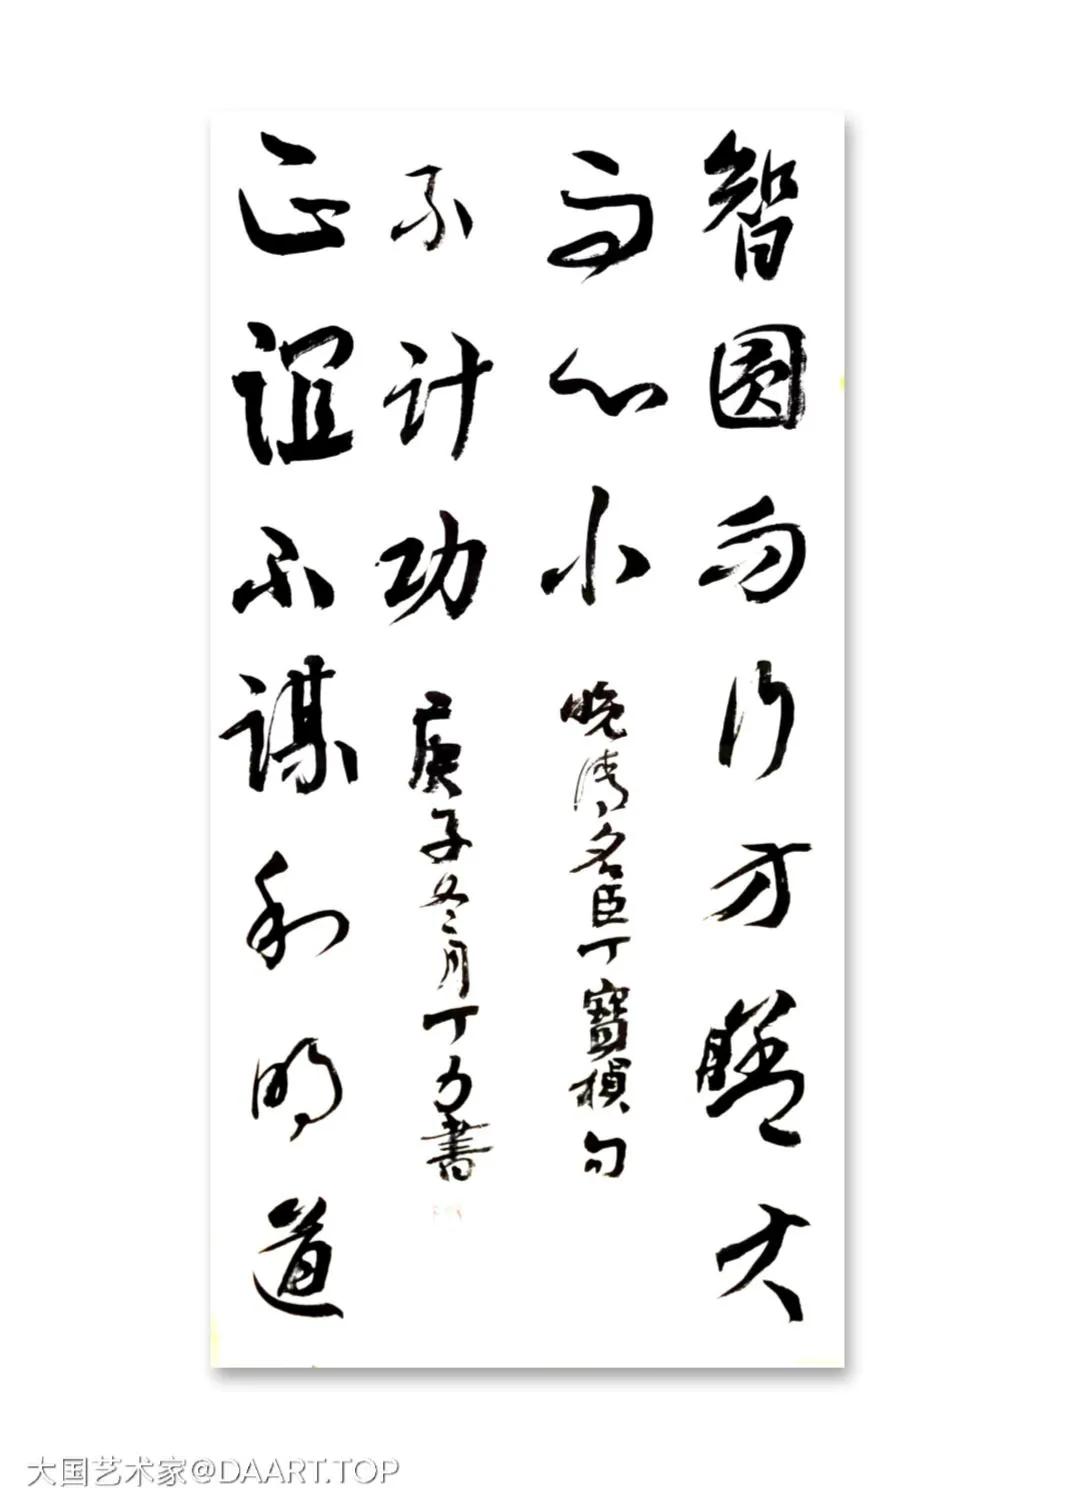 智圆而行方膽大
而心小 晚清名臣丁寶楨句
正谊不谋利明道
不计功 庚子冬月丁力書
大国艺术家@DAART.TOP